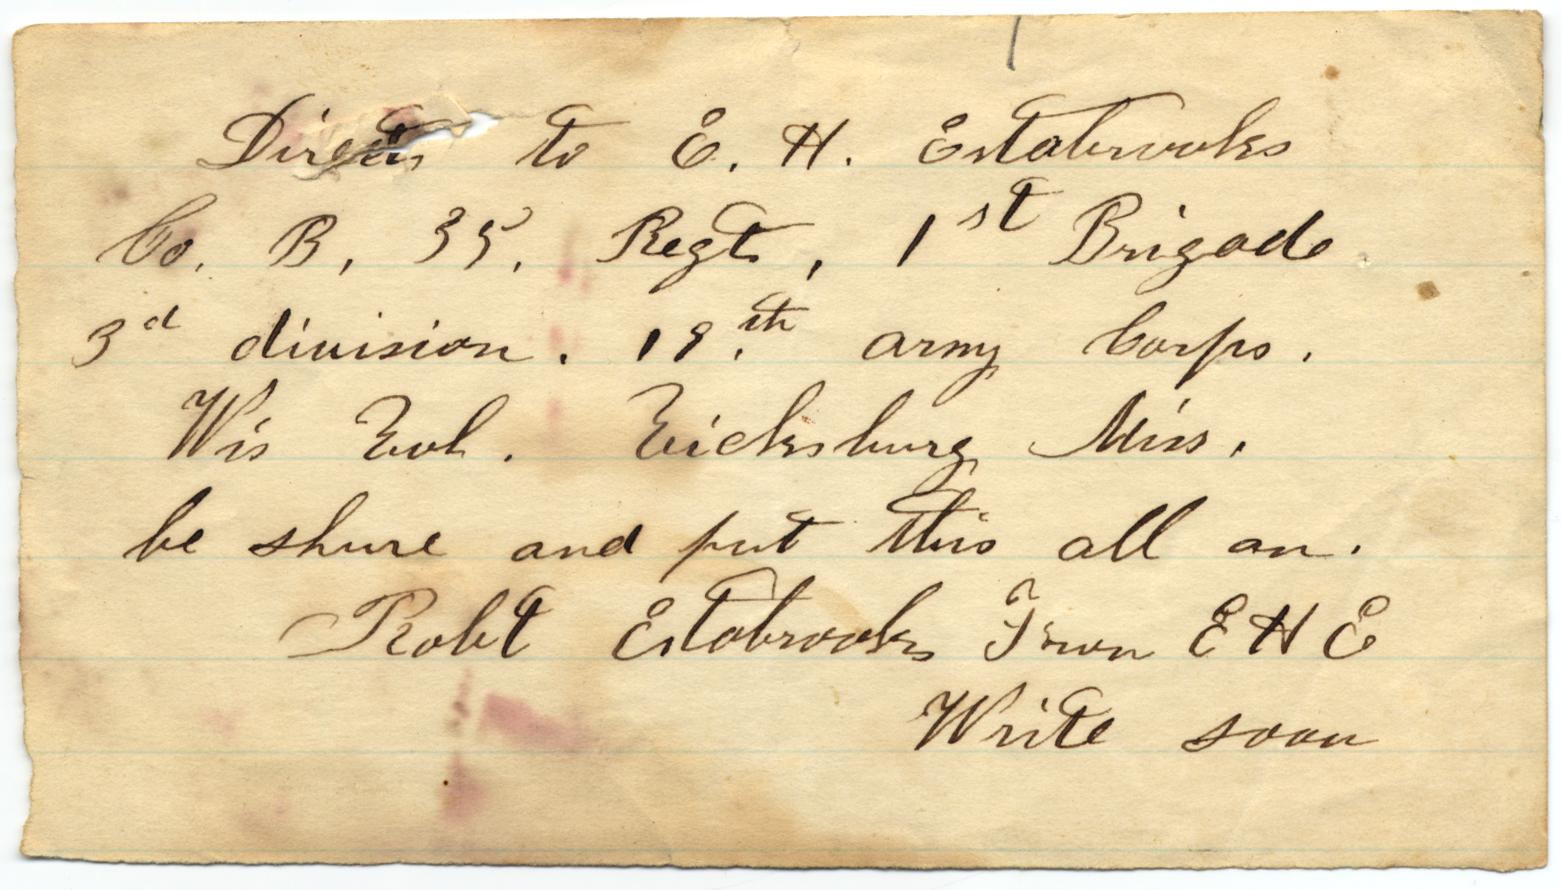 Direct to E. H. Estabrooks
Co. B, 35, Regt, 1st Brigade
3d division. 19.th army Corps.
Wis Vol. Vicksburg Miss.
be shure and put this all on.
Robt Estabrooks From E H E
Write soon